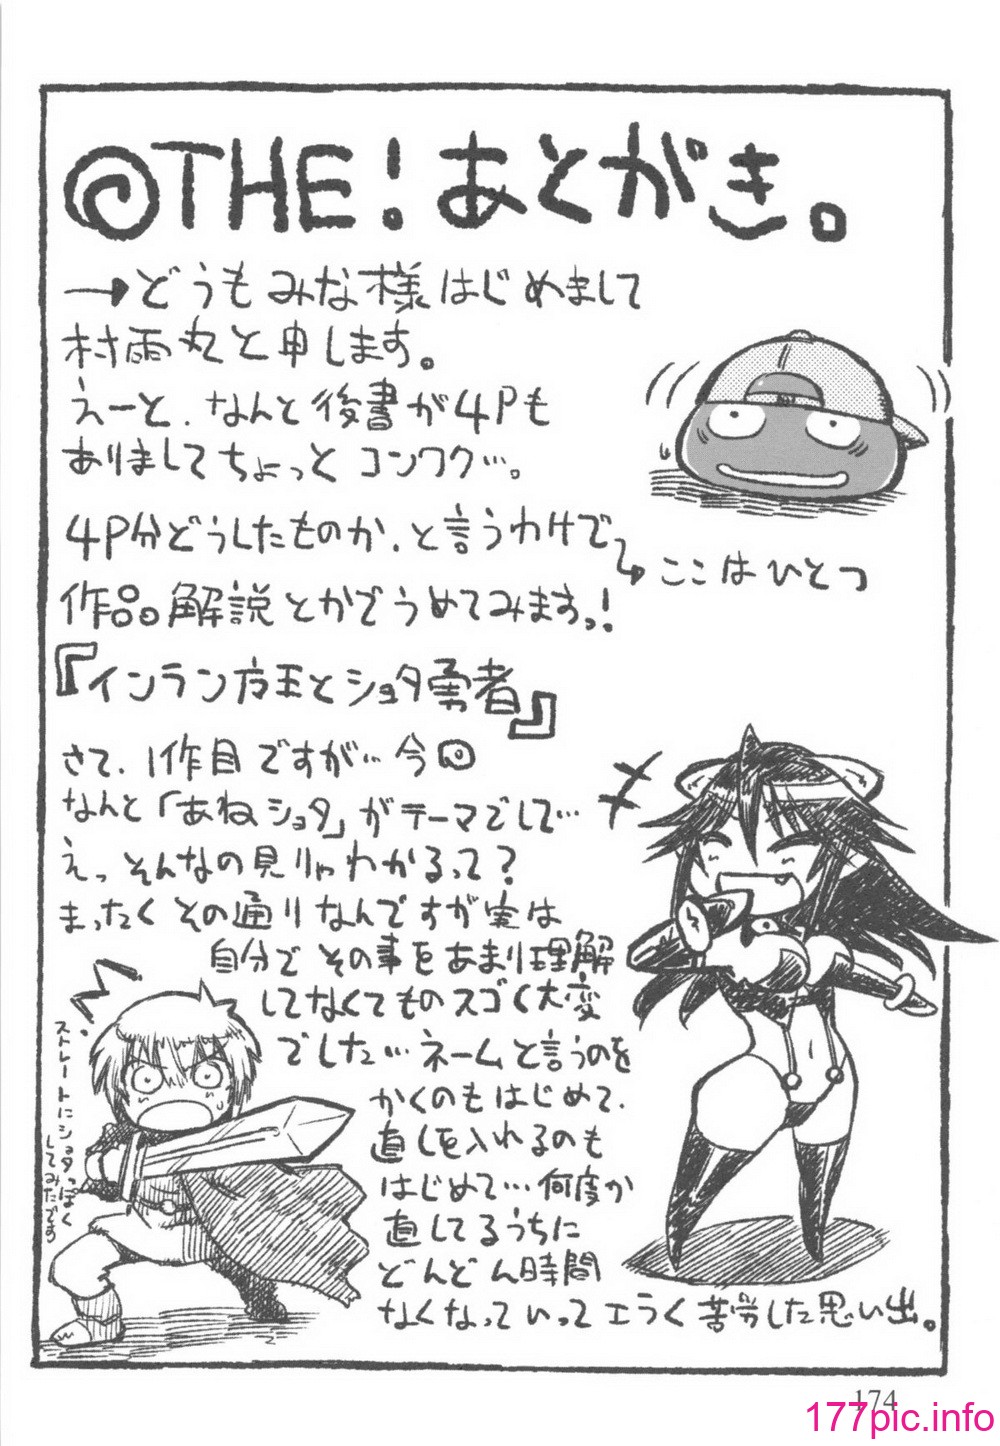 @THE!あとがき。
→どうもみな様はじめまして
村雨丸と申します。
えーと、なんと後書が4Pも
ありましてちょっとコンワク…。
4P分どうしたものか、と言うわけで
作品解説とかでうめてみますっ!
ここはひとつ
『インラン方王とショタ勇者』
さて、1作目ですが…今回
なんと「あねショタ」がテーマでして…
えっそんなの見りゃわかるって?
まったくその通りなんですが実は
自分でその事をあまり理解
してなくてものスゴく大変
でした…ネームと言うのを
かくのもはじめて、
直しを入れるのも
はじめて…何度か
直してるうちに
どんどん時間
なくなっていってエラく苦労した思い出。
ストレートにショタっぽく
してみたです
174
177pic.info